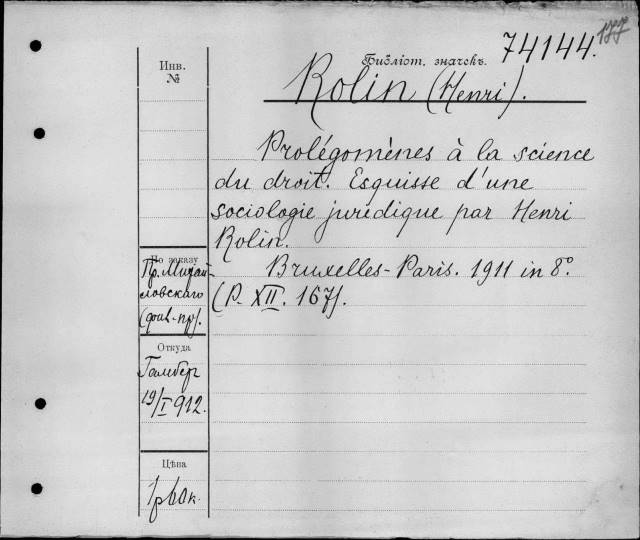 177
74144.
Инв.
№
Библіот. значекъ.
Rolin (Henri).
Prolégomènes à la science
du droit. Esquisse d'une
sociologie juridique par Henri
Rolin.
По заказу
Пр. Михай-
ловскаго
Bruxelles-Paris. 1911 in 8°.
(P. XII. 167).
Откуда
19/I 912.
Цѣна
1р60к.